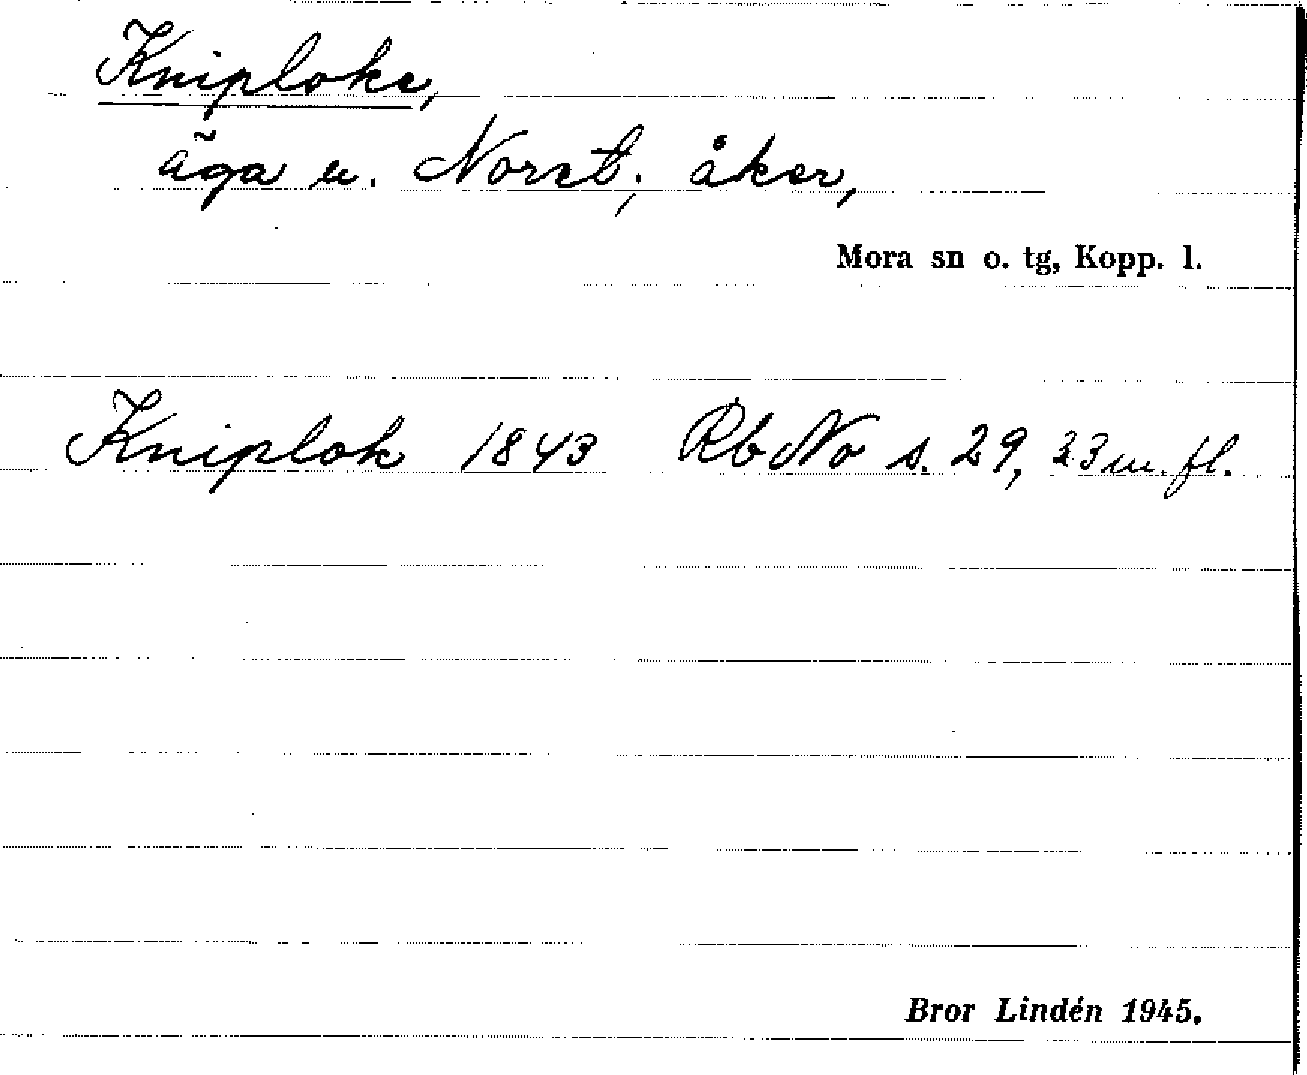 Kniploke,
äga u. Noret; åker,
Mora sn o. tg, Kopp. l.
Kniplok 1843 RbNo s. 29, 33 m. fl.
Bror Lindén 1945.